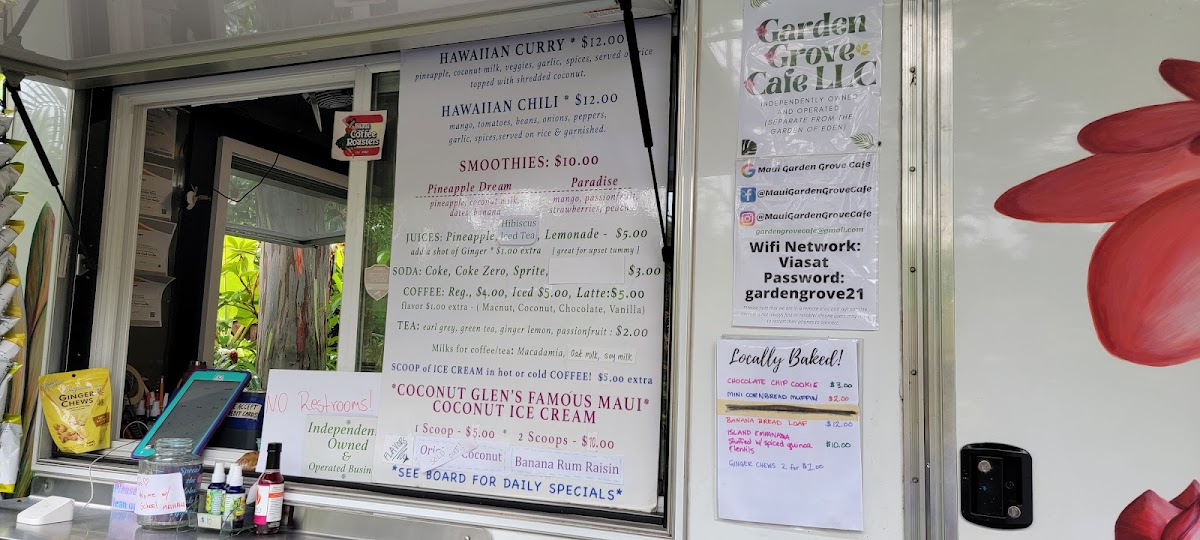 HAWAIIAN CURRY * $12.00
pineapple, coconut milk, veggies, garlic, spices, served on rice
topped with shredded coconut.
HAWAIIAN CHILI * $12.00
mango, tomatoes, beans, onions, peppers,
garlic, spices,served on rice & garnished.
SMOOTHIES: $10.00
Pineapple Dream Paradise
pineapple, coconut milk, mango, passionfruit,
dates, banana strawberries, peaches
JUICES: Pineapple, Hibiscus Iced Tea, Lemonade - $5.00
add a shot of Ginger * $1.00 extra ( great for upset tummy )
SODA: Coke, Coke Zero, Sprite, $3.00
COFFEE: Reg., $4.00, Iced $5.00, Latte:$5.00
flavor $1.00 extra - ( Macnut, Coconut, Chocolate, Vanilla)
TEA: earl grey, green tea, ginger lemon, passionfruit : $2.00
Milks for coffee/tea: Macadamia, Oat milk, soy milk
SCOOP of ICE CREAM in hot or cold COFFEE! $5.00 extra
*COCONUT GLEN'S FAMOUS MAUI*
COCONUT ICE CREAM
1 Scoop - $5.00 * 2 Scoops - $10.00
Coconut Banana Rum Raisin
*SEE BOARD FOR DAILY SPECIALS*
Coffee
Roasters
GINGER
CHEWS
NO Restrooms!
Independen
Owned
&
Operated Busin
Garden
Grove
Cafe LLC
INDEPENDENTLY OWNED
AND OPERATED
(SEPARATE FROM THE
GARDEN OF EDEN)
Maui Garden Grove Cafe
@MauiGardenGroveCafe
@MauiGardenGroveCafe
gardengrovecafe@gmail.com
Wifi Network:
Viasat
Password:
gardengrove21
Locally Baked!
CHOCOLATE CHIP COOKIE $3.00
MINI CORNBREAD MUFFIN $2.00
BANANA BREAD LOAF $12.00
ISLAND EMPANADA
Stuffed w/ spiced quinoa $10.00
& lentils
GINGER CHEWS 2 for $1.00